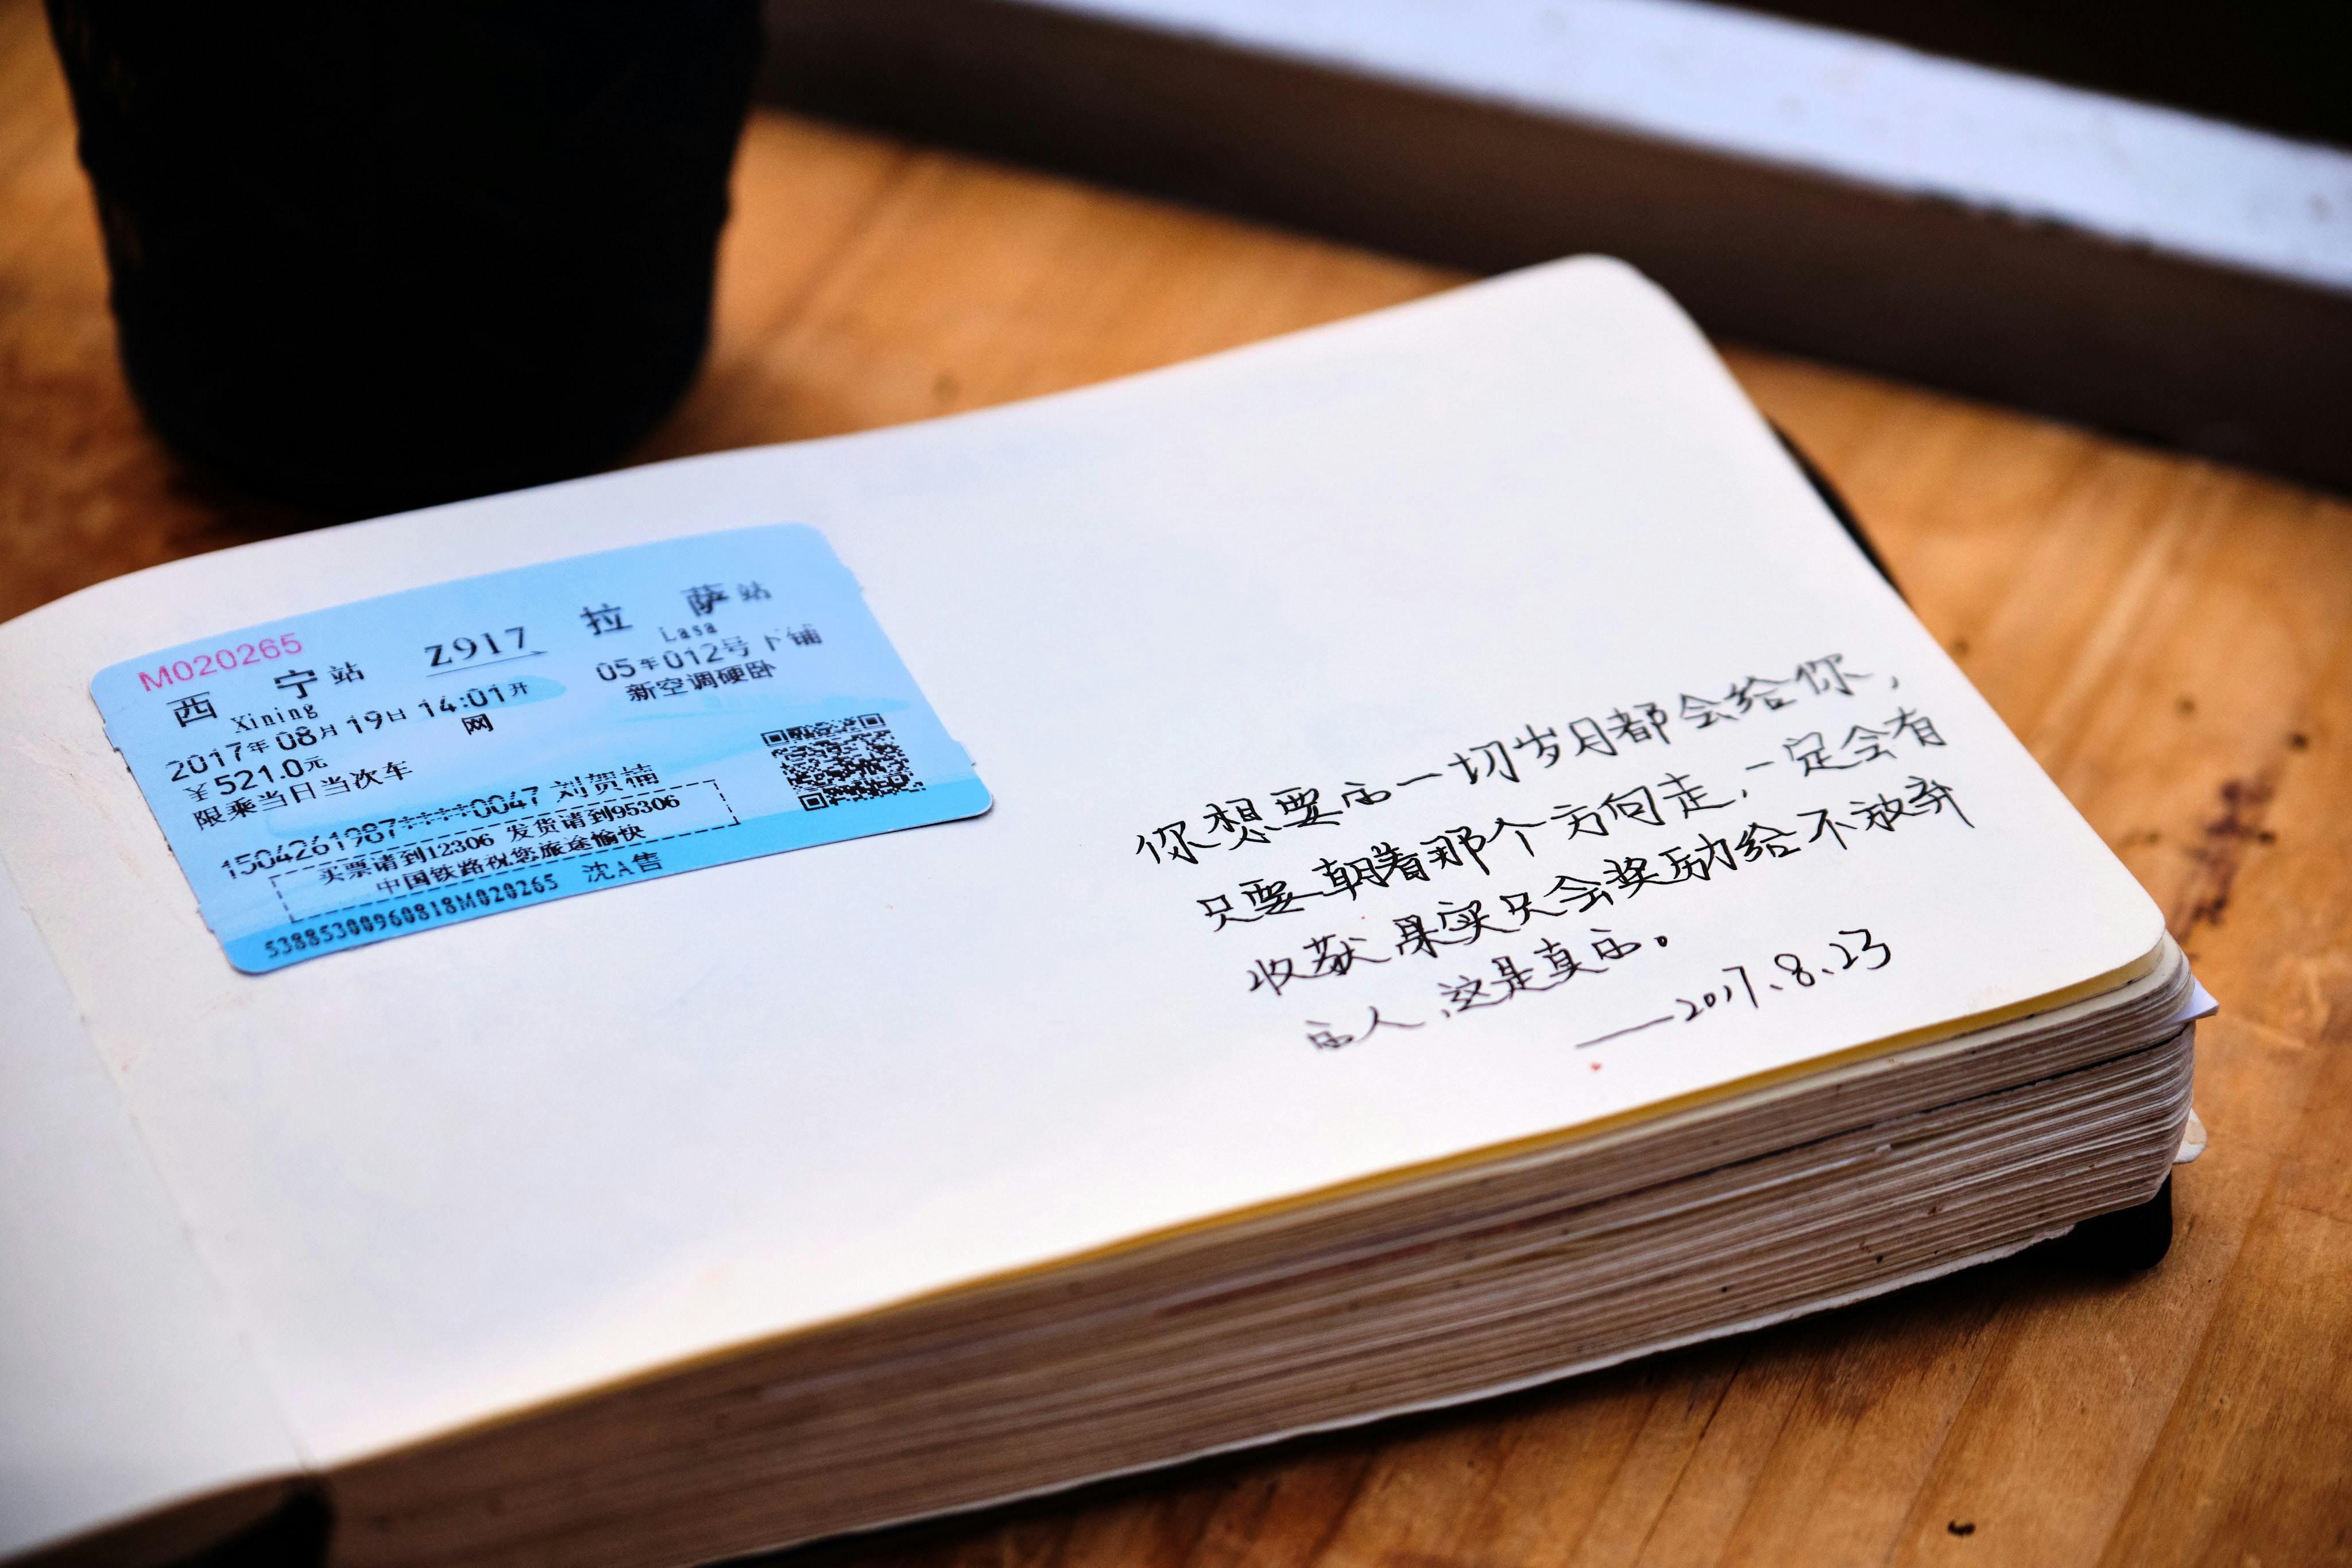 M020265
西宁站 Z917 拉萨站
Xining Lasa
2017年08月19日14:01开 05车012号下铺
¥521.0元 网 新空调硬卧
限乘当日当次车
1504261987****0047 刘贺楠
买票请到12306 发货请到95306
中国铁路祝您旅途愉快
5388530096081​8M020265 沈A售
你想要的一切岁月都会给你，
只要朝着那个方向走，一定会有
收获果实只会奖励给不放弃
的人，这是真的。
——2017.8.23